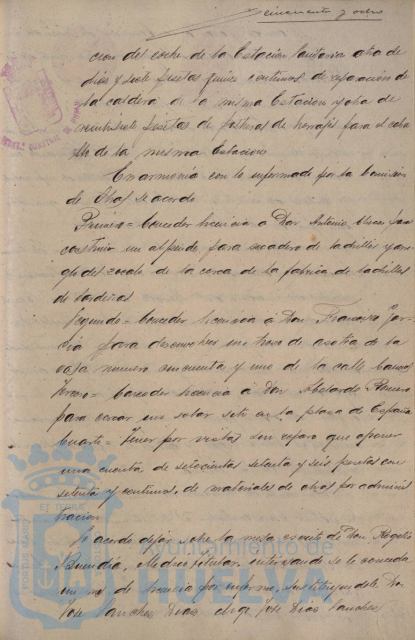 cincuenta y ocho
cion del coche de la Estacion Sanitaria otra de
diez y siete pesetas quince centimos de reparacion de
la caldera de la misma Estacion y otra de
veintisiete pesetas de posturas de herrajes para el caba
llo de la misma Estacion
En armonia con lo informado por la Comision
de Obras se acordo
Primero = Conceder licencia á Don Antonio para
construir un alpende para secadero de ladrillos y
del zocalo de la cerca de la fabrica de ladrillos
de Cardeñas
Segundo = Conceder licencia á Don Francisco Gar
cia para un trozo de de la
casa numero cincuenta y uno de la calle
Tercero = Conceder licencia á Don Abelardo Romero
para cercar un solar sito en la plaza de España
Cuarto = Tener por vistas sin reparo que oponer
una cuenta de setecientas setenta y seis pesetas con
setenta y centimos, de materiales de obras por adminis
tracion
Se acordo dejar sobre la mesa escrito de Don Rogelio
Buendia, Medico titular, interesando se le conceda
un mes de licencia por enfermo, sustituyendole Don
Jose Sanchez Dias José Dias Sanchez
Ayuntamiento de
HUELVA